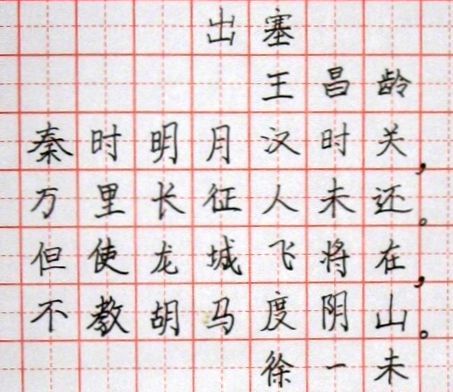 出塞
王昌龄
秦时明月汉时关，
万里长征人未还。
但使龙城飞将在，
不教胡马度阴山。
徐一未